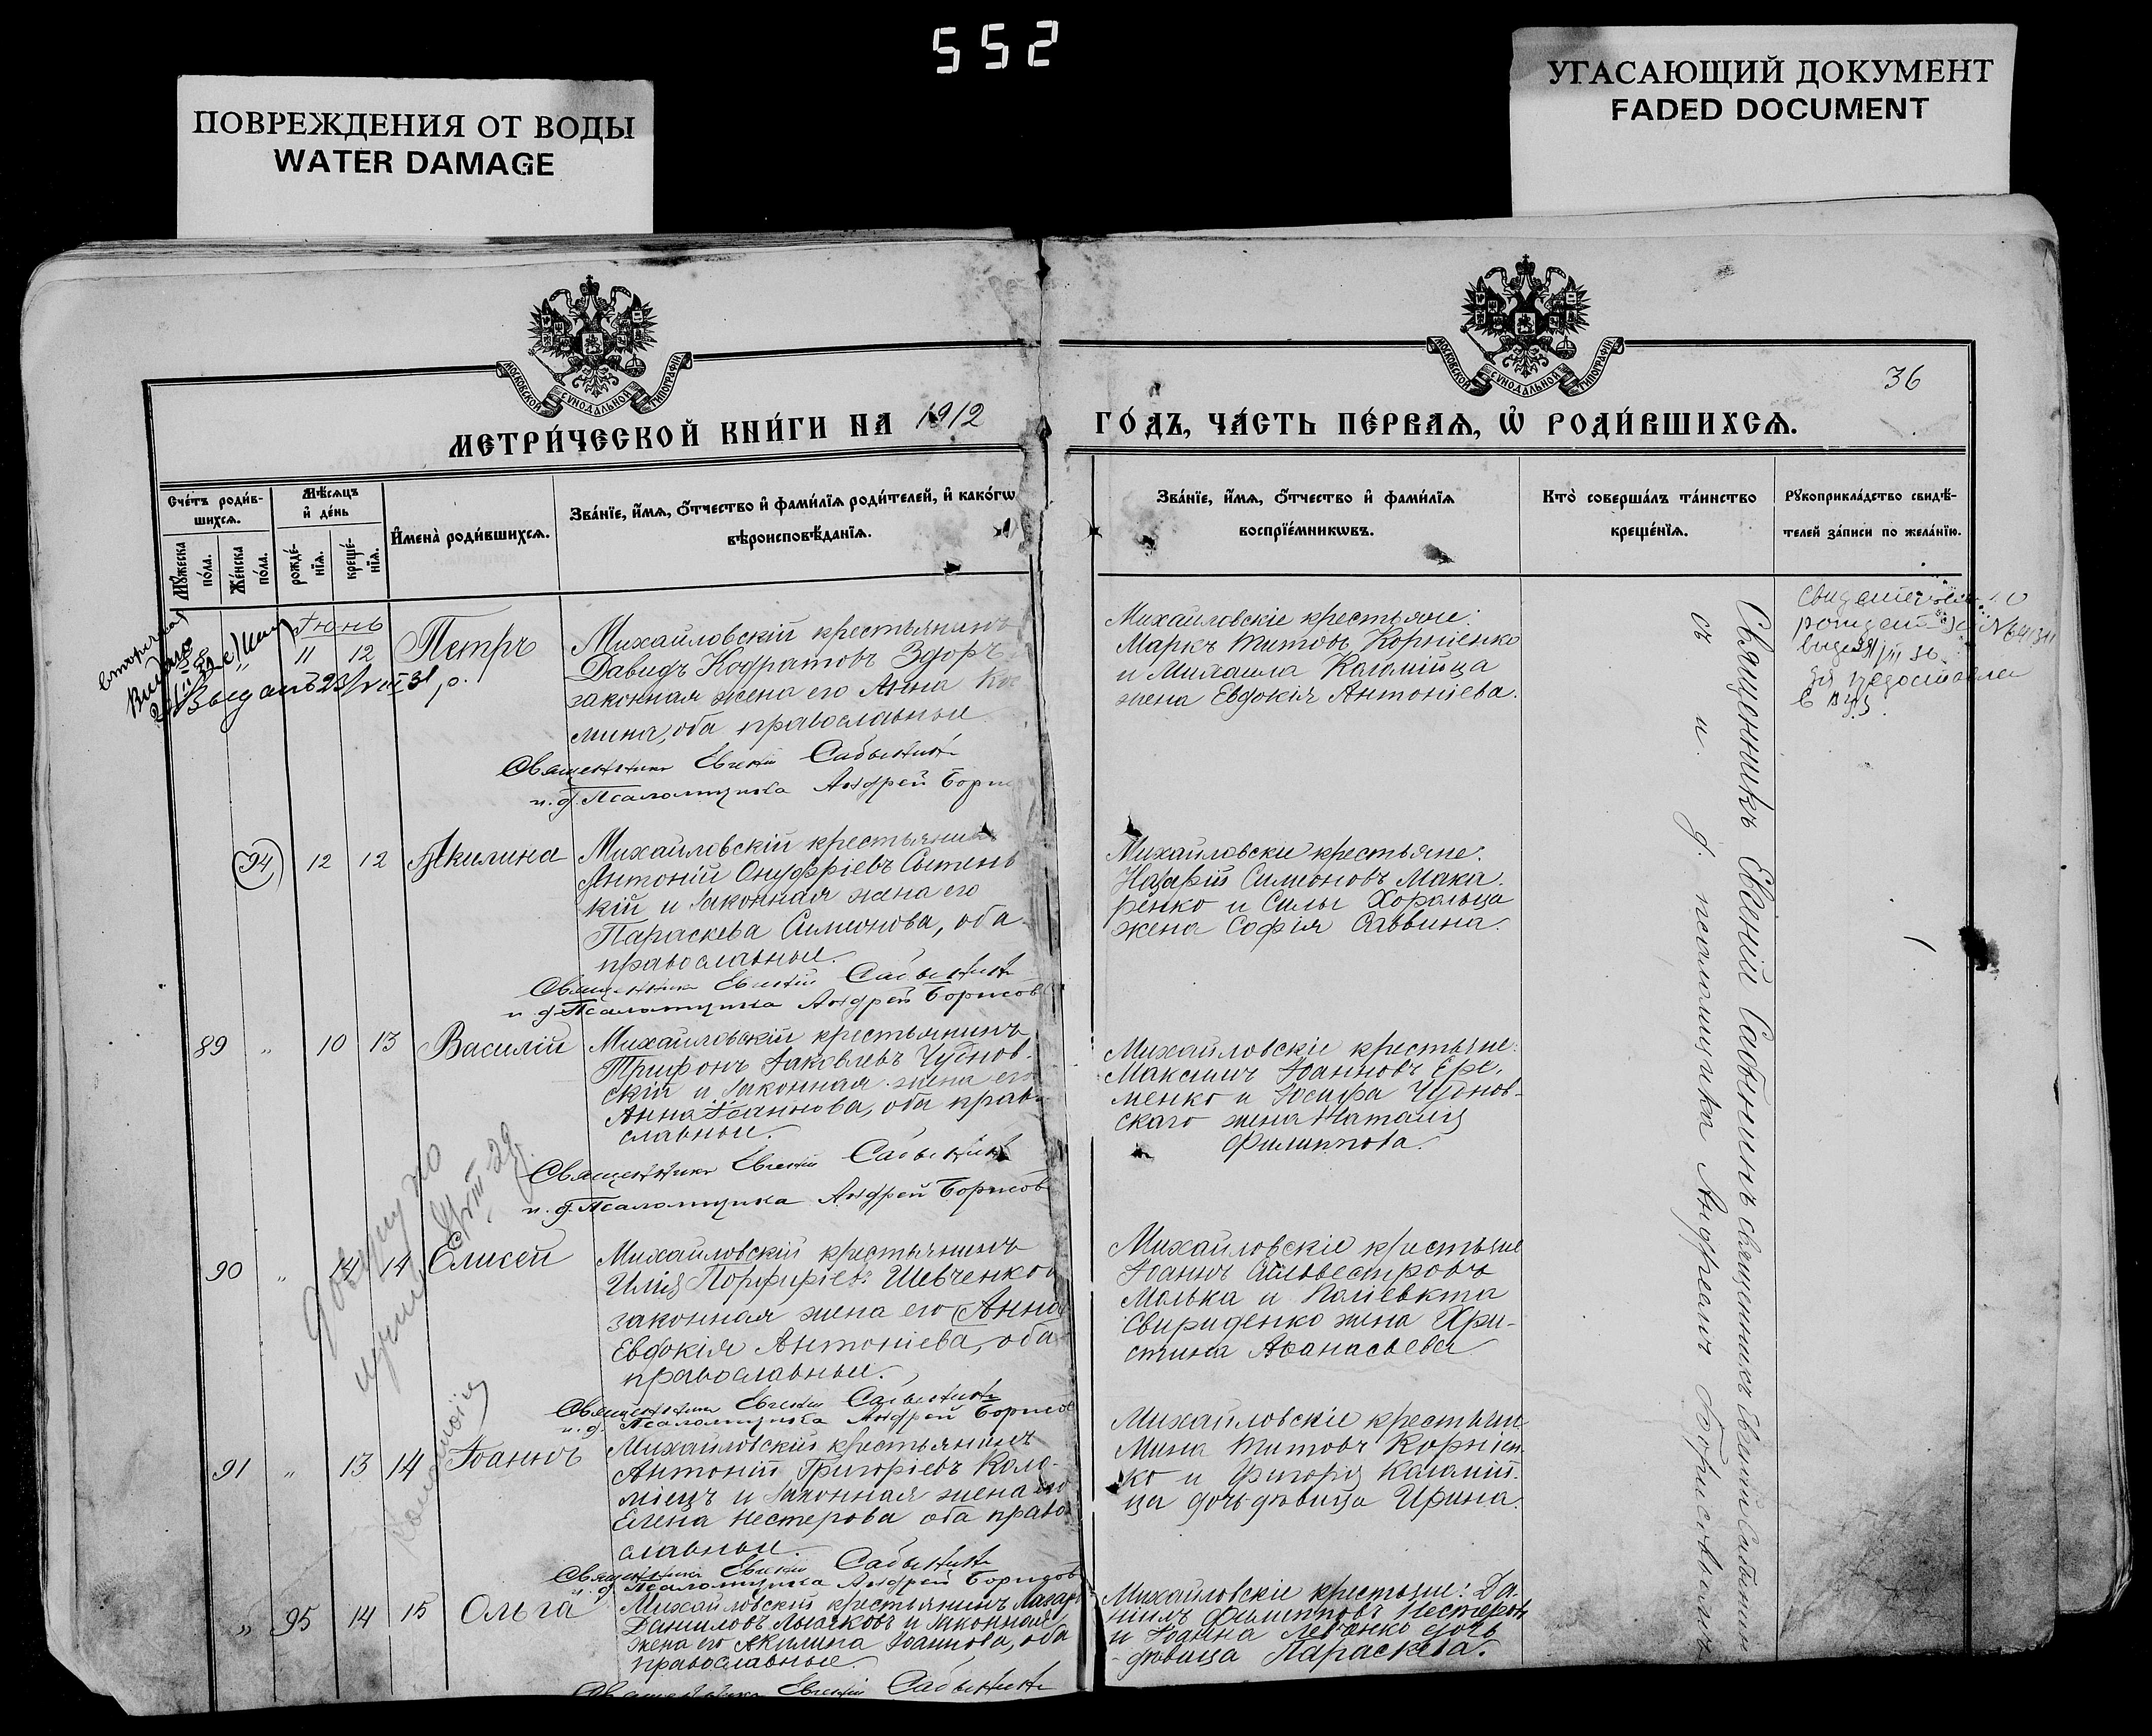 552
ПОВРЕЖДЕНИЯ ОТ ВОДЫ
WATER DAMAGE
УГАСАЮЩИЙ ДОКУМЕНТ
FADED DOCUMENT
МОСКОВСКОЙ СѴНОДАЛЬНОЙ ТИПОГРАФІИ
МОСКОВСКОЙ СѴНОДАЛЬНОЙ ТИПОГРАФІИ
36
МЕТРИ́ЧЕСКОЙ КНИ́ГИ НА 1912
ГО́ДЪ, ЧА́СТЬ ПЕ́РВАѦ, Ѡ РОДИ́ВШИХСѦ.
Сче́тъ роди́в-
шихсѧ.
Мꙋ́жеска
по́ла.
Же́нска
по́ла.
Мѣ́сѧцъ
и҆ де́нь
рожде́-
нїѧ.
креще́-
нїѧ.
И҆мена̀ роди́вшихсѧ.
Зва́нїе, и҆́мѧ, ѻ҆́тчество и҆ фами́лїѧ роди́телей, и҆ како́гѡ
вѣроисповѣ́данїѧ.
Зва́нїе, и҆́мѧ, ѻ҆́тчество и҆ фами́лїѧ
воспрїе́мникѡвъ.
Кто̀ соверша́лъ та́инство
креще́нїѧ.
Рꙋкоприкла́дство свидѣ́-
телей за́писи по жела́нїю.
Іюнь
11 12 Петръ
Михайловскій крестьянинъ
Давидъ Кодратовъ Здоръ
законная жена его Анна
мина, оба православные
Священникъ Евгеній Сабынинъ
и. д. Псаломщика Андрей Борис
Михайловскіе крестьяне:
Маркъ Титовъ Корніенко
и Михаила Каламійца
жена Евдокія Антоніева.
94 12 12 Акилина
Михайловскій крестьянинъ
Антоній Онуфріевъ Сытень
кій и законная жена его
Параскева Симеонова, оба
православные.
Священникъ Евгеній Сабынинъ
и. д. Псаломщика Андрей Борисов
Михайловскіе крестьяне:
Назарій Симеоновъ Мака
ренко и Силы Хорольца
жена Софія Саввина.
89 " 10 13 Василій
Михайловскій крестьянинъ
Трифонъ Іаковлевъ Чуднов-
скій и законная жена его
Анна Іоаннова, оба право
славные.
Священникъ Евгеній Сабынинъ
и. д. Псаломщика Андрей Борисов
Михайловскіе крестьяне:
Максимъ Іоанновъ Ере-
менко и Іосифа Чуднов-
скаго жена Наталія
Филиппова.
90 " 14 14 Елисей
Михайловскій крестьянинъ
Илія Порфиріевъ Шевченко и
законная жена его (Анна
Евдокія Антоніева, оба
православные.
Священникъ Евгеній Сабынинъ
и. д. Псаломщика Андрей Борисов
Михайловскіе крестьяне
Іоаннъ Сильвестровъ
Малька и Поліевкта
Свириденко жена Хри-
стина Аѳанасьева
91 " 13 14 Іоаннъ
Михайловскій крестьянинъ
Антоній Григоріевъ Коло-
міецъ и законная жена его
Елена Нестерова оба право
славные.
Священникъ Евгеній Сабынинъ
и. д. Псаломщика Андрей Борисов
Михайловскіе крестьяне
Мина Титовъ Корніен-
ко и Григорія Каламій-
ца дочь дѣвица Ирина.
" 95 14 15 Ольга
Михайловскій крестьянинъ Лазарь
Даниловъ Лысаковъ и законная
жена его Акилина Іоаннова, оба
православные.
Священникъ Евгеній Сабынинъ
Михайловскіе крестьяне: Да-
ніилъ Филипповъ Нестеров
и Іоанна Левченко дочь
дѣвица Параскева.
Священникъ Евгеній Сабынинъ священникъ Евгеній Сабынинъ
съ и. д. псаломщика Андреемъ Борисовымъ